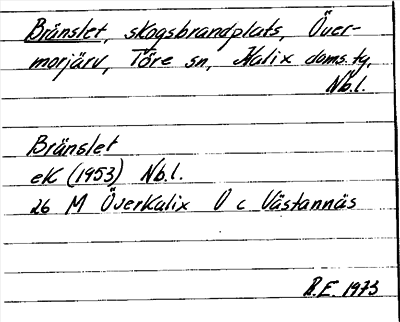 Bränslet, skogsbrandplats, Över-
morjärv, Töre sn, Kalix doms.tg.
Nb.l.
Bränslet
eK (1953) Nb.l.
26 M ÖverKalix V c Västannäs
R.E. 1973